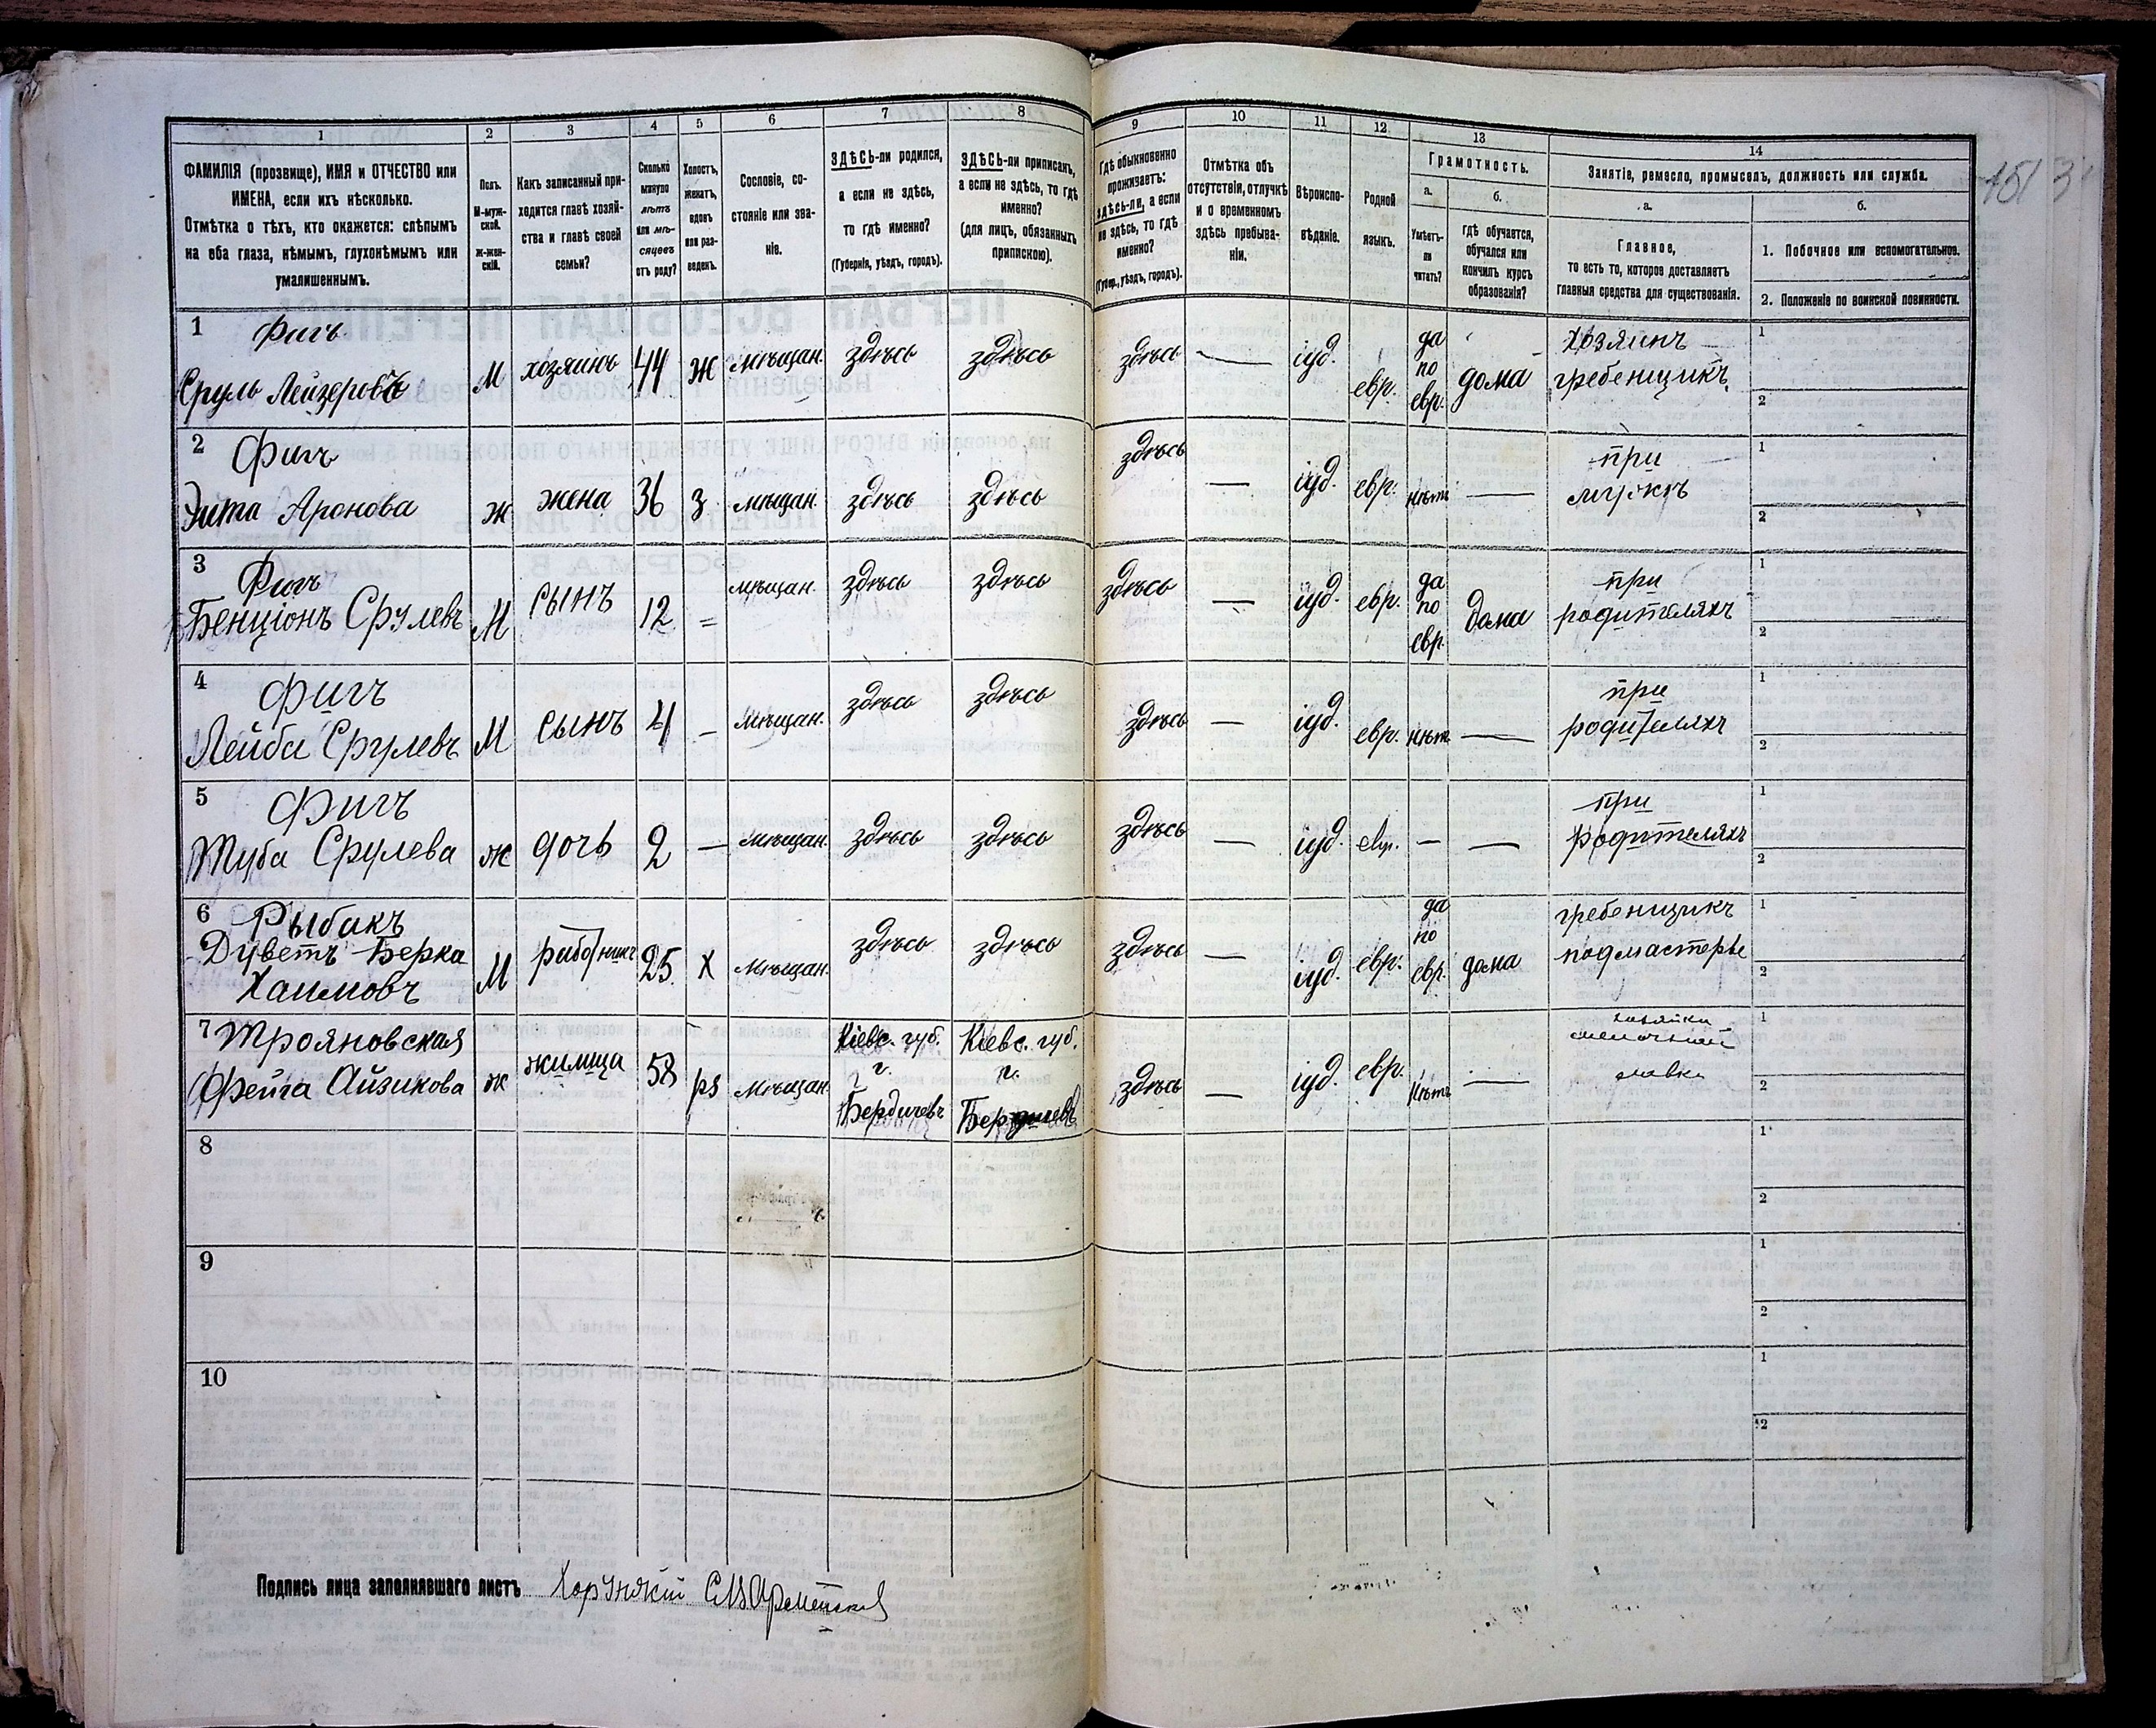 1 2 3 4 5 6 7 8 9 10 11 12 13 14
ФАМИЛІЯ (прозвище), ИМЯ и ОТЧЕСТВО или
ИМЕНА, если ихъ нѣсколько.
Отмѣтка о тѣхъ, кто окажется: слѣпымъ
на оба глаза, нѣмымъ, глухонѣмымъ или
умалишеннымъ.
Полъ.
М-муж-
ской.
Ж-жен-
скій.
Какъ записанный при-
ходится главѣ хозяй-
ства и главѣ своей
семьи?
Сколько
минуло
лѣтъ
или мѣ-
сяцевъ
отъ роду?
Холостъ,
женатъ,
вдовъ
или раз-
веденъ.
Сословіе, со-
стояніе или зва-
ніе.
ЗДѢСЬ-ли родился,
а если не здѣсь,
то гдѣ именно?
(Губернія, уѣздъ, городъ).
ЗДѢСЬ-ли приписанъ,
а если не здѣсь, то гдѣ
именно?
(для лицъ, обязанныхъ
припискою).
Гдѣ обыкновенно
проживаетъ:
здѣсь-ли, а если
не здѣсь, то гдѣ
именно?
(Губер., уѣздъ, городъ).
Отмѣтка объ
отсутствіи, отлучкѣ
и о временномъ
здѣсь пребыва-
ніи.
Вѣроиспо-
вѣданіе.
Родной
языкъ.
Грамотность.
а.
Умѣетъ-
ли
читать?
б.
гдѣ обучается,
обучался или
кончилъ курсъ
образованія?
Занятіе, ремесло, промыселъ, должность или служба.
а.
Главное,
то есть то, которое доставляетъ
главныя средства для существованія.
б.
1. Побочное или вспомогательное.
2. Положеніе по воинской повинности.
1 Фигъ
Сруль Лейзеровъ М хозяинъ 44 Ж мѣщан. здѣсь здѣсь здѣсь — іуд. евр. да по евр. дома хозяинъ гребенщикъ 1 2
2 Фигъ
Эита Аронова ж жена 36 з мѣщан. здѣсь здѣсь здѣсь — іуд. евр. нѣтъ — при 1 2
3 Фигъ
Бенціонъ Срулевъ М сынъ 12 = мѣщан. здѣсь здѣсь здѣсь — іуд. евр. да по евр. дома при родителяхъ 1 2
4 Фигъ
Лейба Срулевъ М сынъ 4 – мѣщан. здѣсь здѣсь здѣсь — іуд. евр. нѣтъ — при родителяхъ 1 2
5 Фигъ
Туба Срулева ж дочь 2 — мѣщан. здѣсь здѣсь здѣсь — іуд. евр. — — при родителяхъ 1 2
6 Рыбакъ
Дуветъ-Берка
Хаимовъ М работникъ 25 Х мѣщан. здѣсь здѣсь здѣсь — іуд. евр. да по евр. дома гребенщикъ подмастерье 1 2
7 Трояновская
Фейга Айзикова ж жилица 58 мѣщан. Кіевс. губ. г. Бердичевъ Кіевс. губ. г. Бердичевъ здѣсь — іуд. евр. нѣтъ — хозяйка мелочной лавки 1 2
8 1 2
9 1 2
10 1 2
Подпись лица заполнявшаго листъ